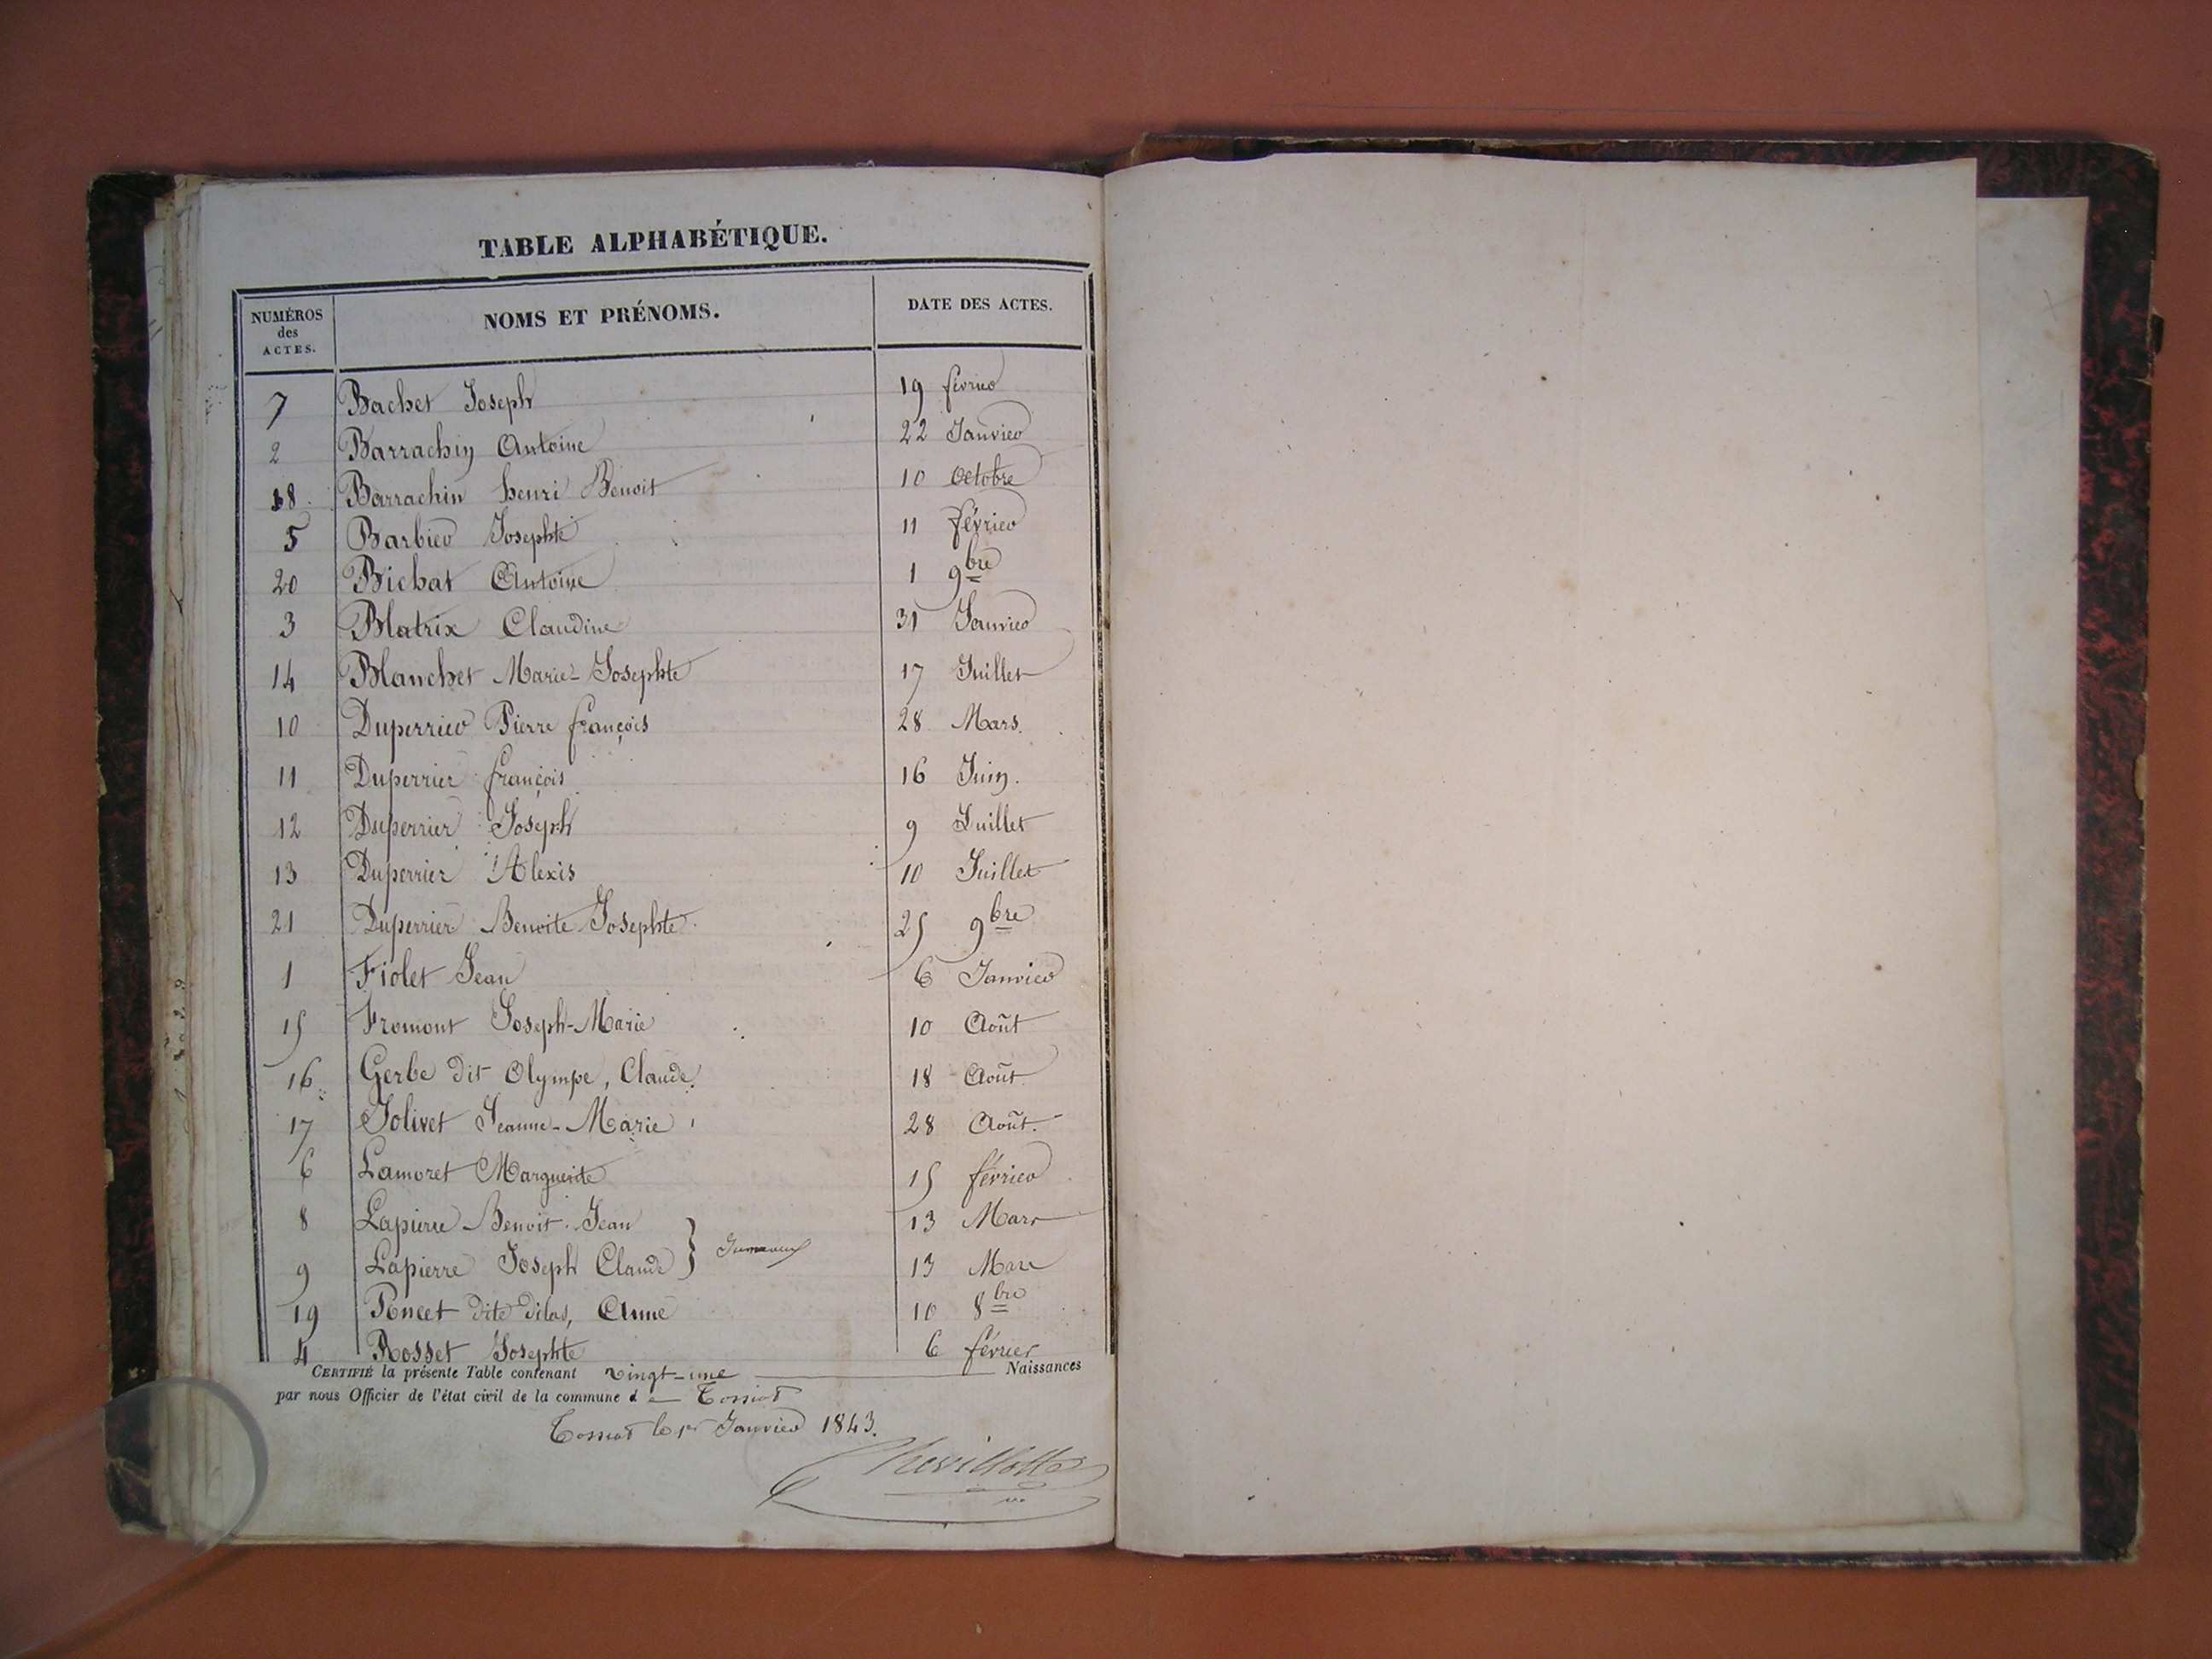 TABLE ALPHABÉTIQUE.
NUMÉROS des ACTES. NOMS ET PRÉNOMS. DATE DES ACTES.
7 Bachet Joseph 19 février
2 Barrachin Antoine 22 Janvier
18 Barrachin henri Benoit 10 Octobre
5 Barbier Josephte 11 février
20 Bichat Antoine 1 9bre
3 Blatrix Claudine 31 Janvier
14 Blanchet Marie-Josephte 17 Juillet
10 Duperrier Pierre françois 28 Mars.
11 Duperrier françois 16 Juin.
12 Duperrier Joseph 9 Juillet
13 Duperrier Alexis 10 Juillet
21 Duperrier Benoite Josephte 25 9bre
1 Fiolet Jean 6 Janvier
15 Fromont Joseph-Marie 10 Août
16 Gerbe dit Olympe, Claude 18 Août
17 Jolivet Jeanne-Marie 28 Août.
6 Lamoret Marguerite 15 février
8 Lapierre Benoit Jean 13 Mars
Jumeaux
9 Lapierre Joseph Claude 13 Mars
19 Poncet dite Anne 10 8bre
4 Rosset Josephte 6 février
CERTIFIÉ la présente Table contenant vingt-une Naissances
par nous Officier de l'état civil de la commune de Tossiat
Tossiat le 1er Janvier 1843.
Chevillotte